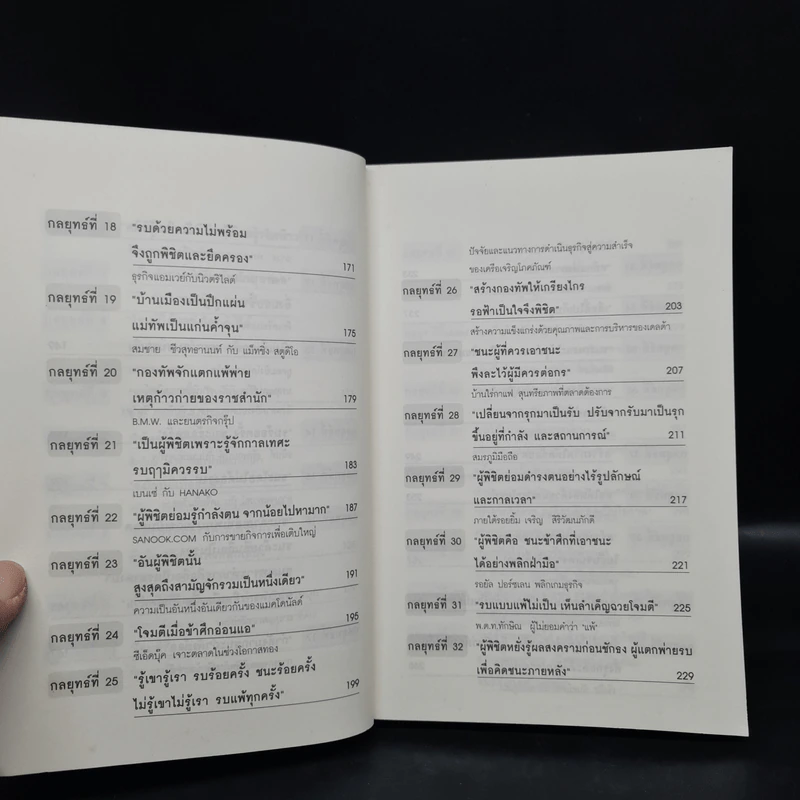 กลยุทธ์ที่ 18 "รบด้วยความไม่พร้อม
จึงถูกพิชิตและยึดครอง" 171
ธุรกิจแอมเวย์กับนิวตริไลต์
กลยุทธ์ที่ 19 "บ้านเมืองเป็นปึกแผ่น
แม่ทัพเป็นแก่นค้ำจุน" 175
สมชาย ชีวสุทธานนท์ กับ แม็ทชิ่ง สตูดิโอ
กลยุทธ์ที่ 20 "กองทัพจักแตกแพ้พ่าย
เหตุก้าวก่ายของราชสำนัก" 179
B.M.W. และยนตรกิจกรุ๊ป
กลยุทธ์ที่ 21 "เป็นผู้พิชิตเพราะรู้จักกาลเทศะ
รบฤๅมิควรรบ" 183
เบนเซ่ กับ HANAKO
กลยุทธ์ที่ 22 "ผู้พิชิตย่อมรู้กำลังตน จากน้อยไปหามาก" 187
SANOOK.COM กับการขายกิจการเพื่อเติบใหญ่
กลยุทธ์ที่ 23 "อันผู้พิชิตนั้น
สูงสุดถึงสามัญจักรวมเป็นหนึ่งเดียว" 191
ความเป็นอันหนึ่งอันเดียวกันของแมคโดนัลด์
กลยุทธ์ที่ 24 "โจมตีเมื่อข้าศึกอ่อนแอ" 195
ซีเอ็ดบุ๊ค เจาะตลาดในช่วงโอกาสทอง
กลยุทธ์ที่ 25 "รู้เขารู้เรา รบร้อยครั้ง ชนะร้อยครั้ง
ไม่รู้เขาไม่รู้เรา รบแพ้ทุกครั้ง" 199
ปัจจัยและแนวทางการดำเนินธุรกิจสู่ความสำเร็จ
ของเครือเจริญโภคภัณฑ์
กลยุทธ์ที่ 26 "สร้างกองทัพให้เกรียงไกร
รอฟ้าเป็นใจจึงพิชิต" 203
สร้างความแข็งแกร่งด้วยคุณภาพและการบริหารของเดลต้า
กลยุทธ์ที่ 27 "ชนะผู้ที่ควรเอาชนะ
พึงละไว้ผู้มีควรต่อกร" 207
บ้านไร่กาแฟ สุนทรียภาพที่ตลาดต้องการ
กลยุทธ์ที่ 28 "เปลี่ยนจากรุกมาเป็นรับ ปรับจากรับมาเป็นรุก
ขึ้นอยู่ที่กำลัง และสถานการณ์" 211
สมรภูมิมือถือ
กลยุทธ์ที่ 29 "ผู้พิชิตย่อมดำรงตนอย่างไร้รูปลักษณ์
และกาลเวลา" 217
ภายใต้รอยยิ้ม เจริญ สิริวัฒนภักดี
กลยุทธ์ที่ 30 "ผู้พิชิตคือ ชนะข้าศึกที่เอาชนะ
ได้อย่างพลิกฝ่ามือ" 221
รอยัล ปอร์ซเลน พลิกเกมธุรกิจ
กลยุทธ์ที่ 31 "รบแบบแพ้ไม่เป็น เห็นสำเค็ญฉวยโจมตี" 225
พ.ต.ท.ทักษิณ ผู้ไม่ยอมคำว่า "แพ้"
กลยุทธ์ที่ 32 "ผู้พิชิตหยั่งรู้ผลสงครามก่อนชักธง ผู้แตกพ่ายรบ
เพื่อคิดชนะภายหลัง" 229